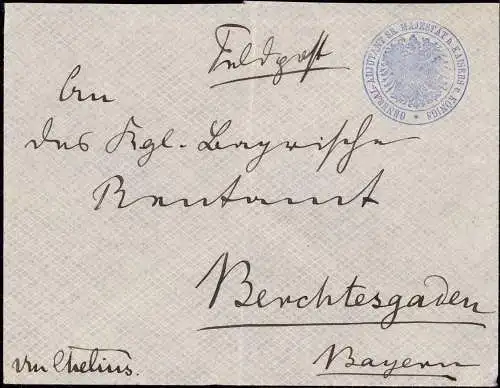 Feldpost
GENERAL-ADJUTANT SR. MAJESTÄT D. KAISERS U. KÖNIGS
An
das Kgl. Bayrische
Rentamt
Berchtesgaden
Bayern
von Chelius.